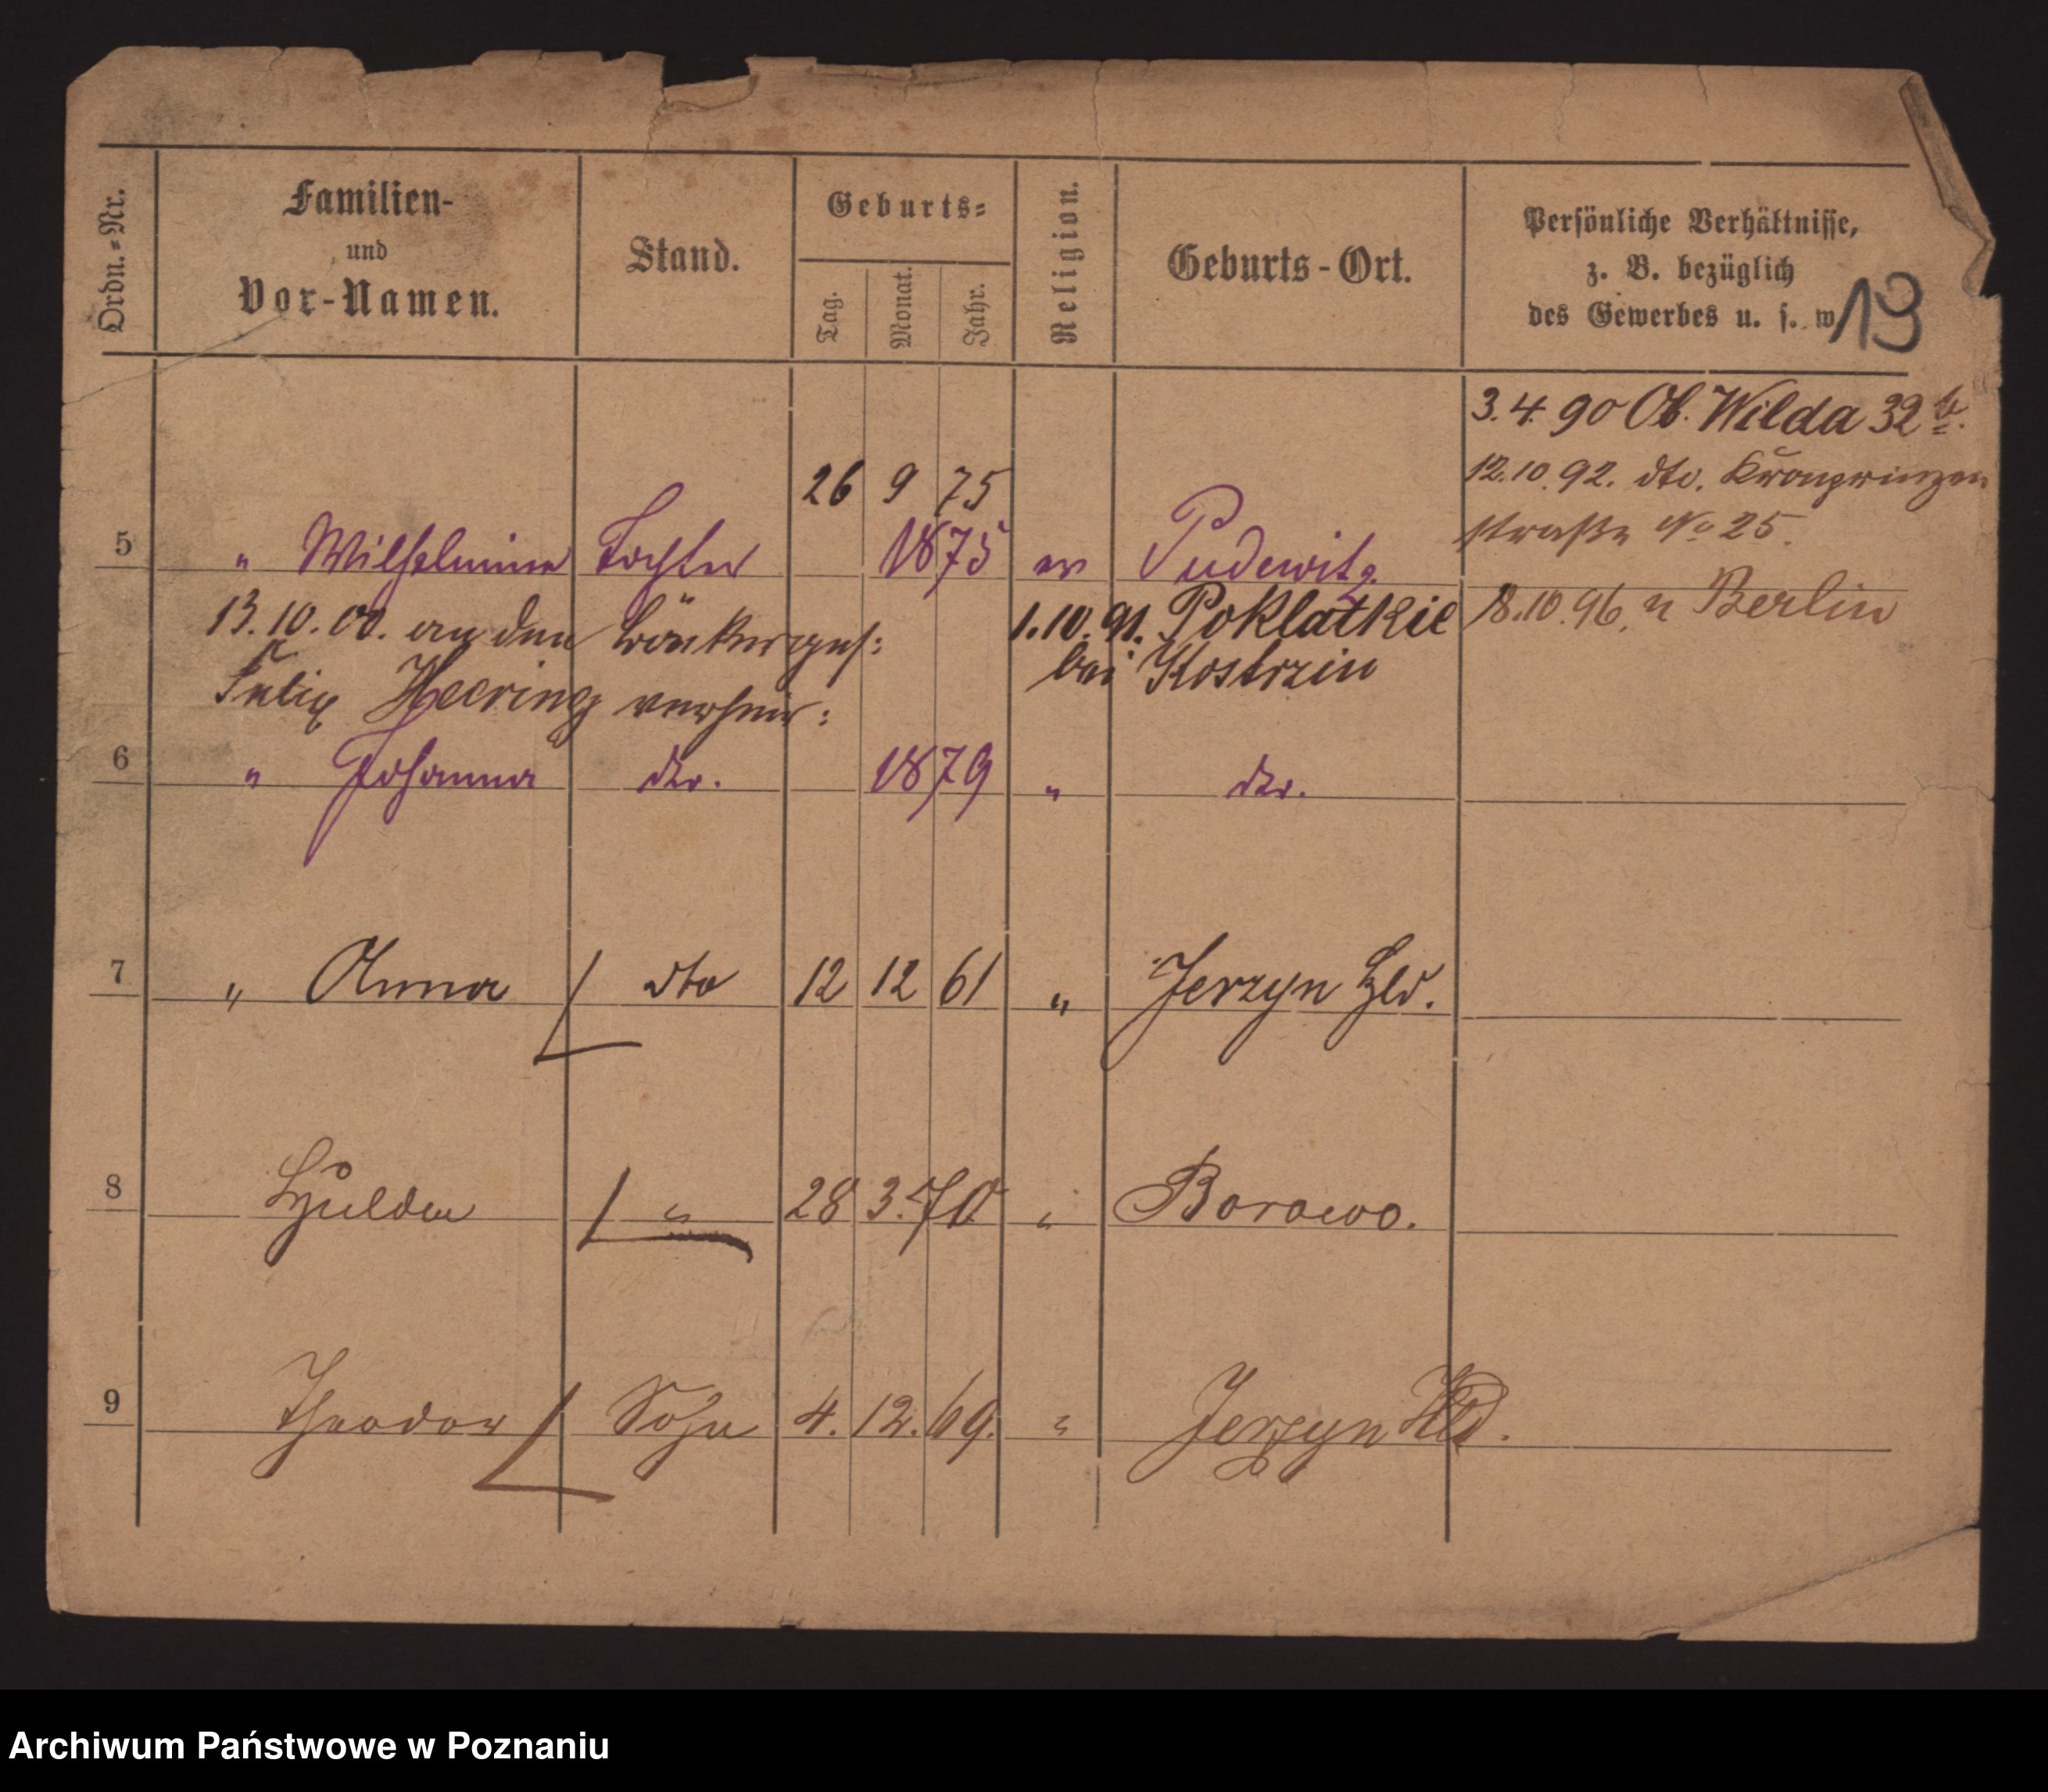 Ordn.-Nr.
Familien-
und
Vor-Namen.
Stand.
Geburts-
Tag.
Monat.
Jahr.
Religion.
Geburts-Ort.
Persönliche Verhältnisse,
z. B. bezüglich
des Gewerbes u. s. w.
19
3.4.90 Ob. Wilda 32 b.
12.10.92. dto. Kronprinzen
straße No 25.
26 9 75
5 " Wilhelmine Tochter 1875 ev Pudewitz
13.10.00. an den 1.10.91. Poklatkie 18.10.96. n Berlin
bei Kostrzin
Felix Heering verheir:
6 " Johanna dto. 1879 " dto.
7 " Anna dto 12 12 61 " Jerzyn Hld.
8 Hulda " 28 3. 70 " Borowo.
9 Theodor Sohn 4. 12. 69. " Jerzyn Hld.
Archiwum Państwowe w Poznaniu